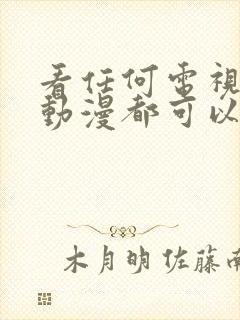 看任何電視
動漫都可以
木月明佐藤南